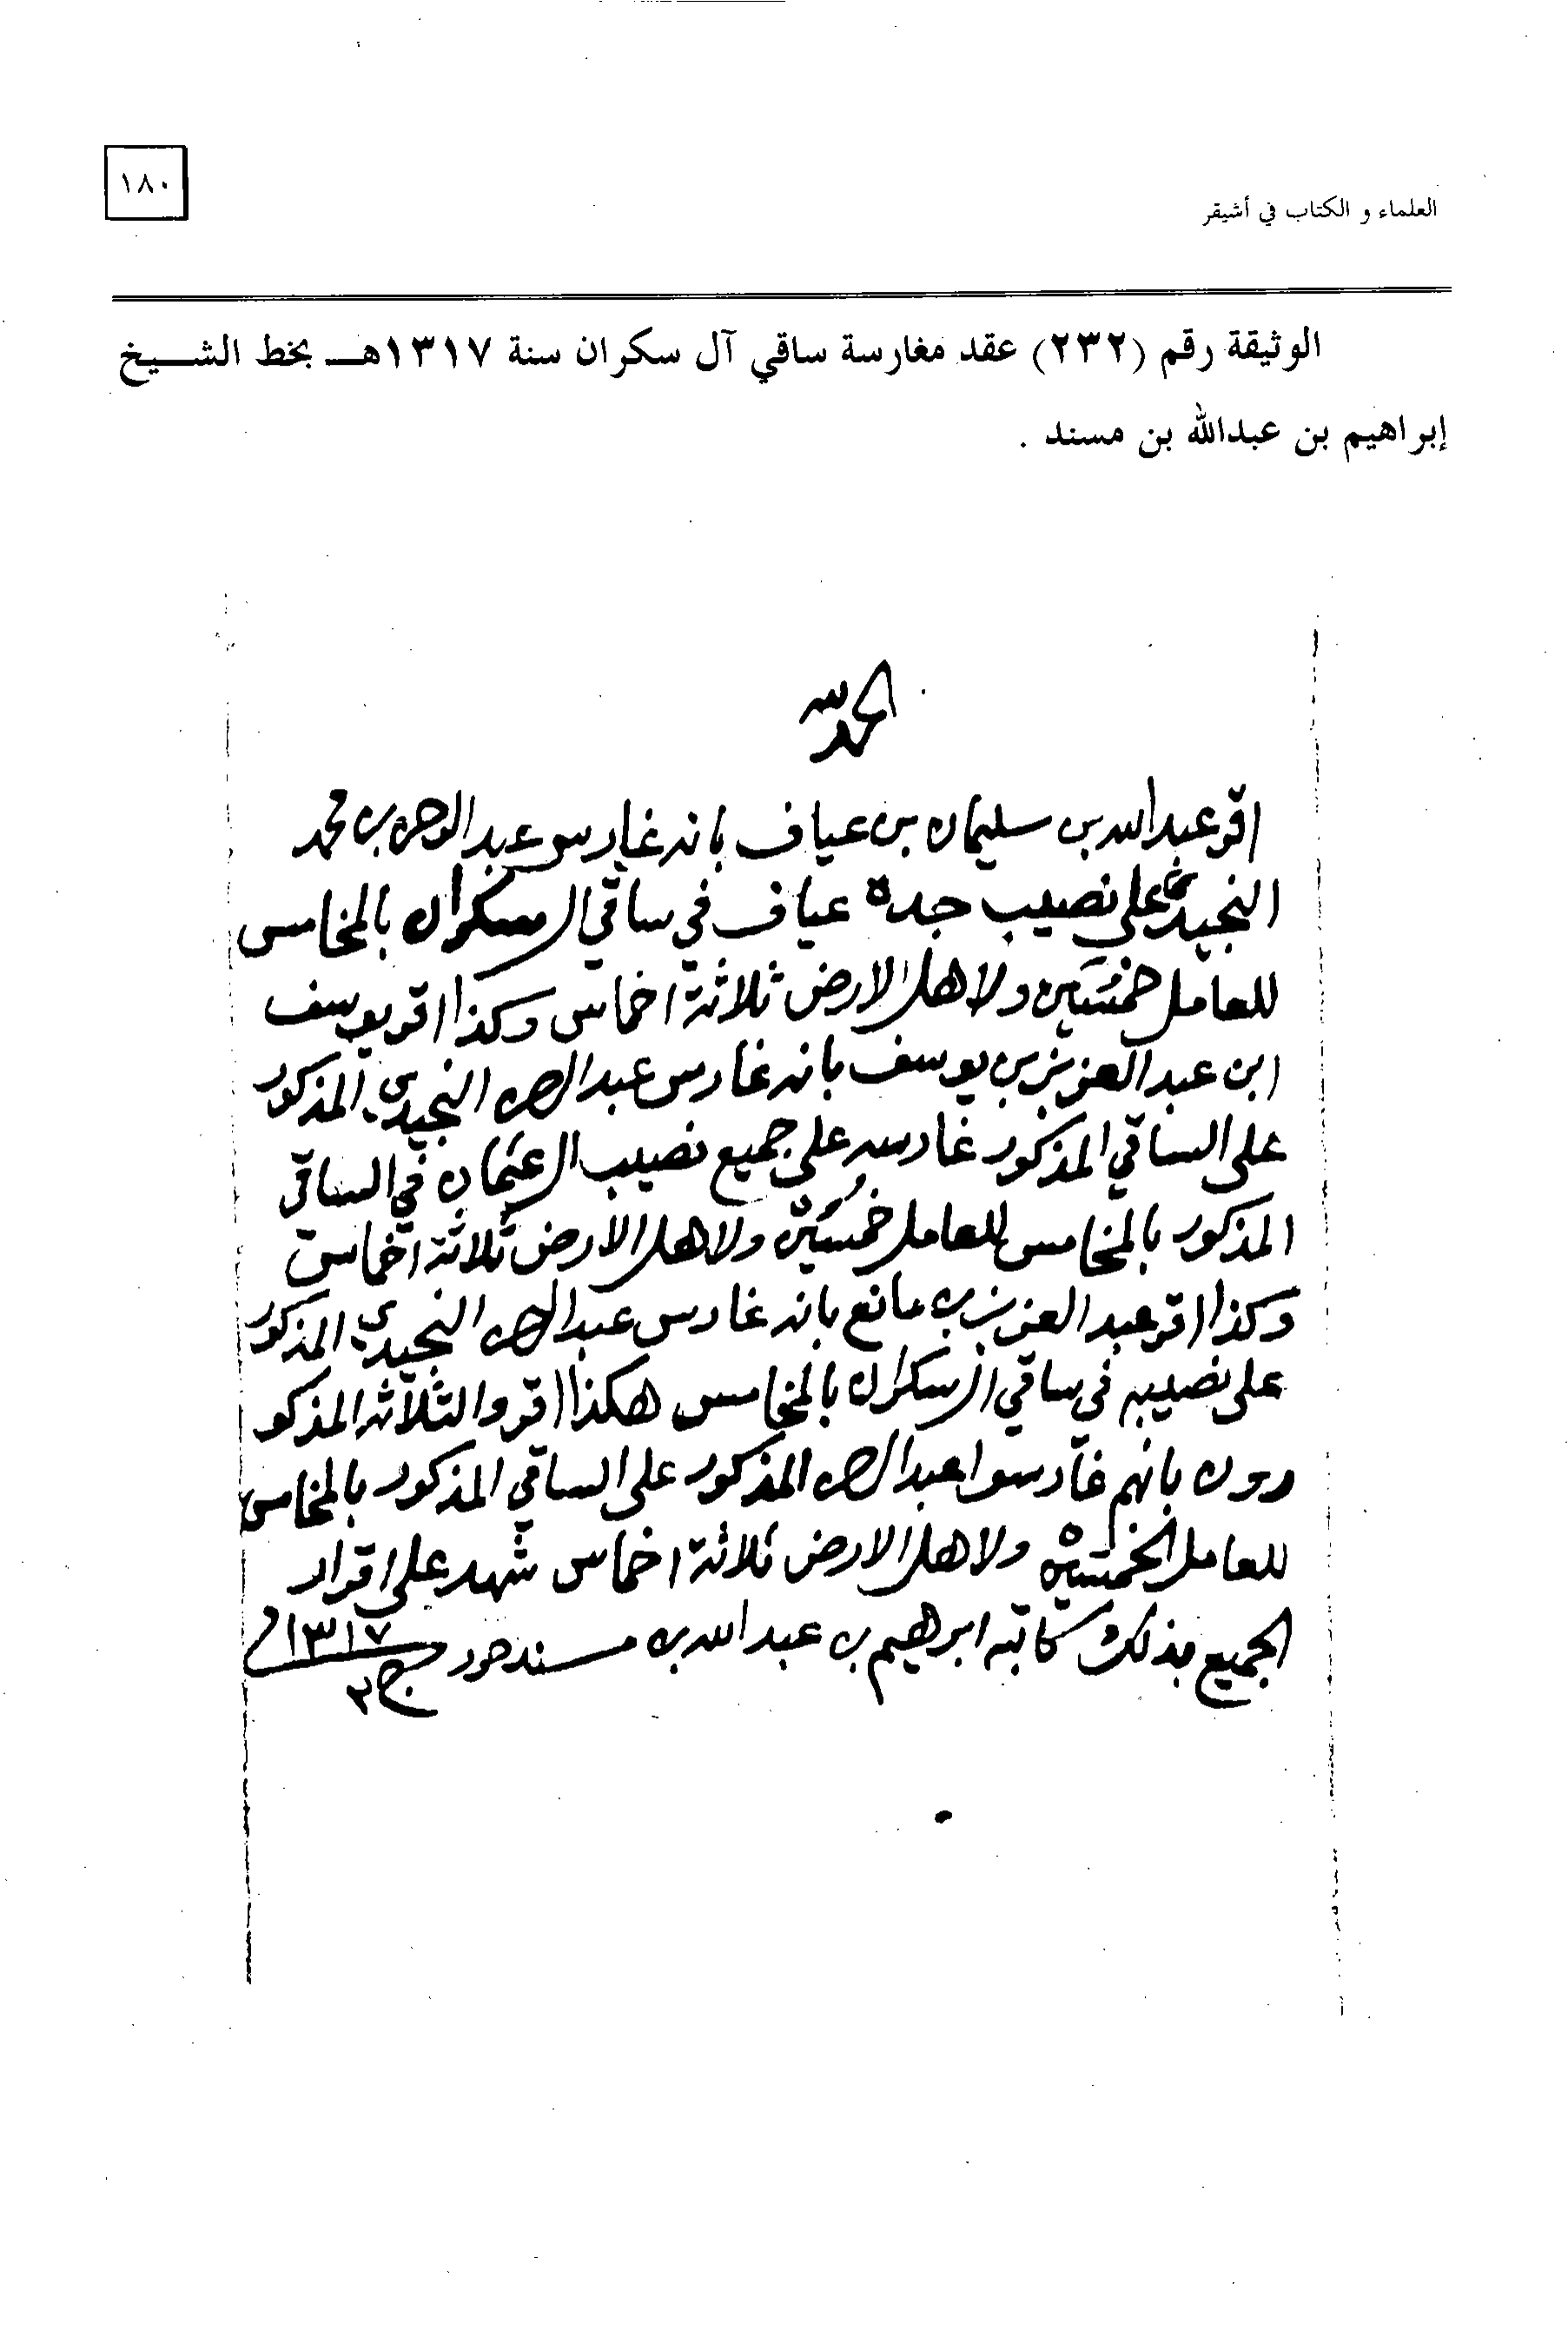 ١٨٠
العلماء و الكتاب في أشيقر
الوثيقة رقم (٢٣٢) عقد مغارسة ساقي آل سكران سنة ١٣١٧هــ بخط الشــيخ
إبراهيم بن عبدالله بن مسند .
الحمد لله
اقر عبدالله بن سليمان بن عياف بانه غارس عبدالرحمن بن محمد
النجيدي على نصيب جده عياف في ساقي ال سكران بالمخامس
للعامل خمسين ولاهل الارض ثلاثة اخماس وكذا اقر يوسف
ابن عبد العزيز بن يوسف بانه غارس عبدالرحمن النجيدي المذكور
على الساقي المذكور غارسه على جميع نصيب ال عثمان في الساقي
المذكور بالمخامس للعامل خمسين ولاهل الارض ثلاثة اخماس
وكذا اقر عبد العزيز بن مانع بانه غارس عبدالرحمن النجيدي المذكور
على نصيبه في ساقي ال سكران بالمخامس هكذا اقروا الثلاثه المذكو
رون بانهم غارسوا عبدالرحمن المذكور على الساقي المذكور بالمخامس
للعامل الخمسين ولاهل الارض ثلاثة اخماس شهد على اقرار
الجميع بذلك كاتبه ابرهيم بن عبد الله بن مسند حرر ١٣١٧
ج ٢